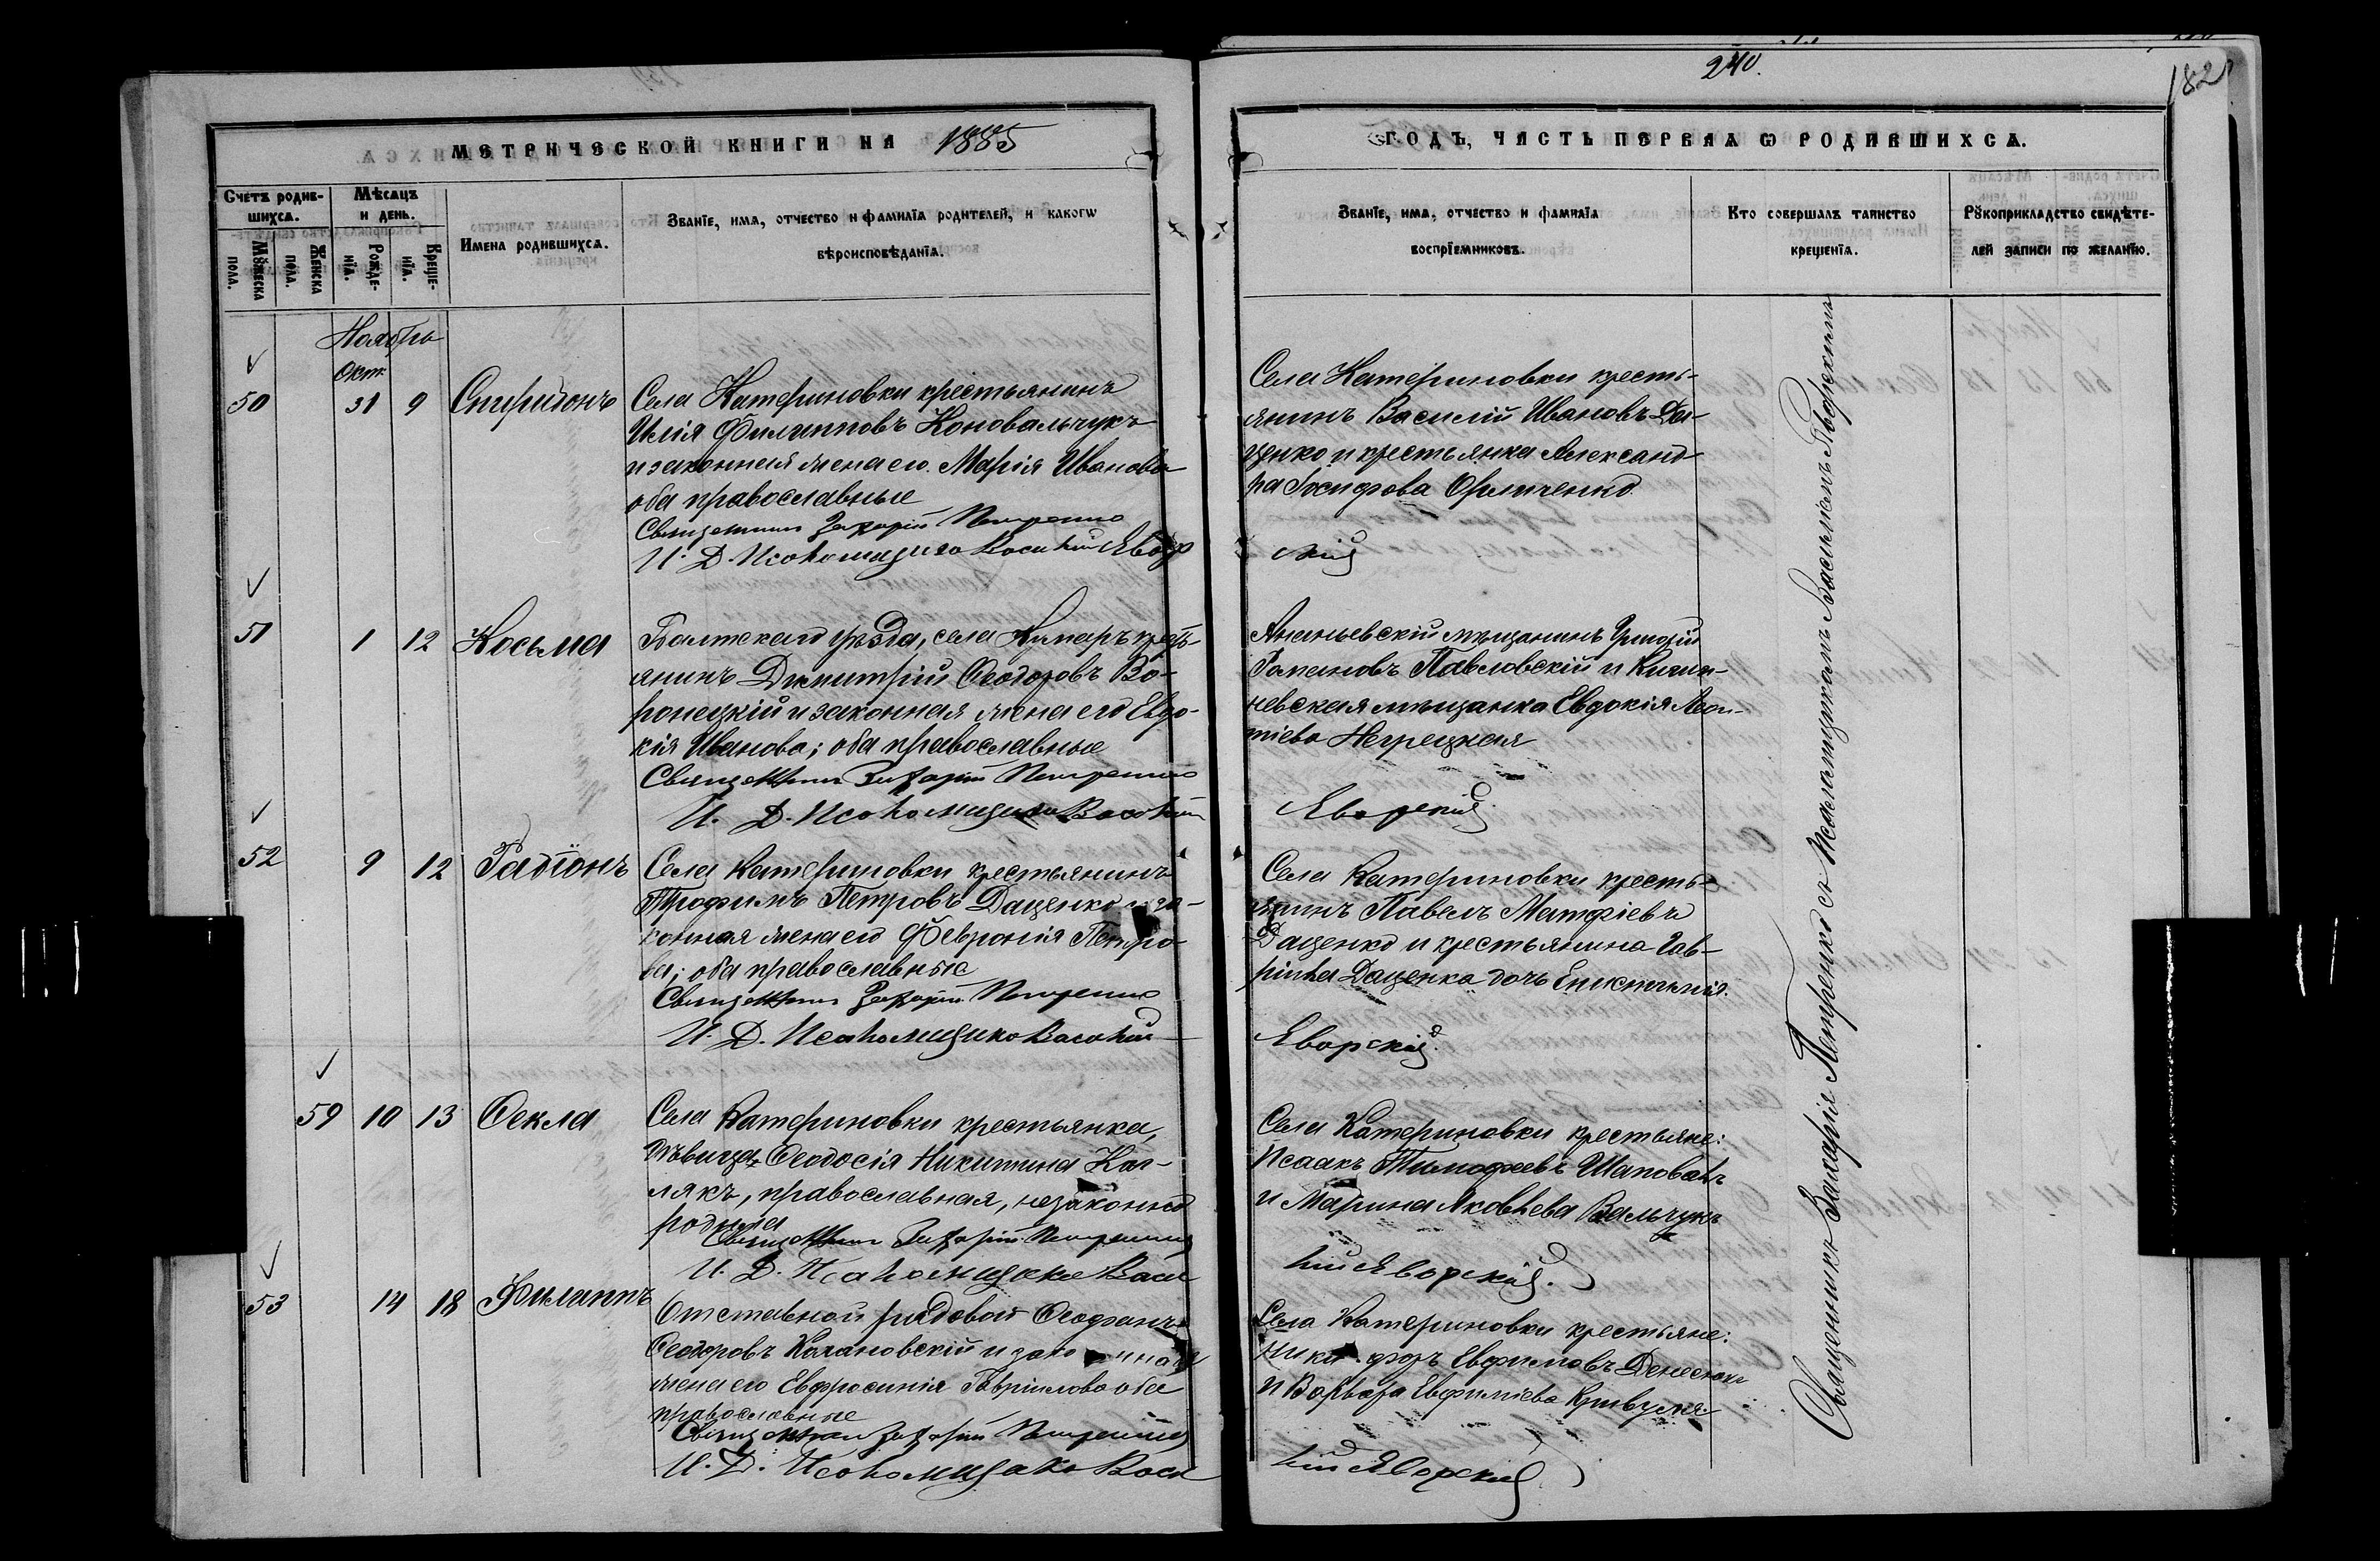 240.
182
МЕТРИЧЕСКОЙ КНИГИ НА 1885
ГОДЪ, ЧАСТЬ ПЕРВАЯ Ѡ РОДИВШИХСѦ.
Счетъ родив-
шихсѧ.
Мꙋжеска
пола.
Женска
пола.
Мѣсѧцъ
и день.
Рожде-
нїѧ.
Креще-
нїѧ.
Имена родившихсѧ.
Званїе, имѧ, отчество и фамилїѧ родителей, и какогѡ
вѣроисповѣданїѧ.
Званїе, имѧ, отчество и фамилїѧ
воспрїемниковъ.
Кто совершалъ таинство
крещенїѧ.
Рꙋкоприкладство свидѣте-
лей записи по желанїю.
Ноябрь
Окт.
50 31 9 Спиридонъ
Села Катериновки крестьянинъ
Илія Филипповъ Коновальчукъ
и законная жена его Марія Иванова
оба православные
Священникъ Захарій Петренко
И. Д. Псаломщика Василій Явор
Села Катериновки кресть-
янинъ Василій Ивановъ Да-
ценко и крестьянка Александ-
ра Іосифова
скій
51 1 12 Косьма
Балтскаго уѣзда, села кресть-
янинъ Димитрій Ѳеодоровъ Во-
ронецкій и законная жена его Евдо-
кія Иванова; оба православные
Священникъ Захарій Петренко
И. Д. Псаломщика Василій
Ананьевскій мѣщанинъ Григорій
Романовъ Павловскій и Киши-
невская мѣщанка Евдокія Леон-
тіева Негрецкая
Яворскій
52 9 12 Радіонъ
Села Катериновки крестьянинъ
Трофимъ Петровъ Даценко и за-
конная жена его Февронія Петро-
ва; оба православные
Священникъ Захарій Петренко
И. Д. Псаломщика Василій
Села Катериновки кресть-
янинъ Павелъ Матфіевъ
Даценко и крестьянина Гав-
ріила Даценка дочь
Яворскій
59 10 13 Ѳекла
Села Катериновки крестьянка,
дѣвица Ѳеодосія Никитина Кол-
лякъ, православная, незаконно
родила
Священникъ Захарій Петренко
И. Д. Псаломщика Васи
Села Катериновки крестьяне:
Исаакъ Тимофеевъ Шаповалъ
и Марина Яковлева Вальчукъ
лій Яворскій.
53 14 18 Филиппъ
Отставной рядовой Ѳеофанъ
Ѳеодоровъ Качановскій и законная
жена его Евфросинія Гавріилова оба
православные
Священникъ Захарій Петренко
И. Д. Псаломщика Васи
Села Катериновки крестьяне:
Никифоръ Евфимовъ Денесюкъ
и Варвара Евфиміева
лій Яворскій
Священникъ Захарія Петренко съ Псаломщикомъ Василіемъ Яворскимъ